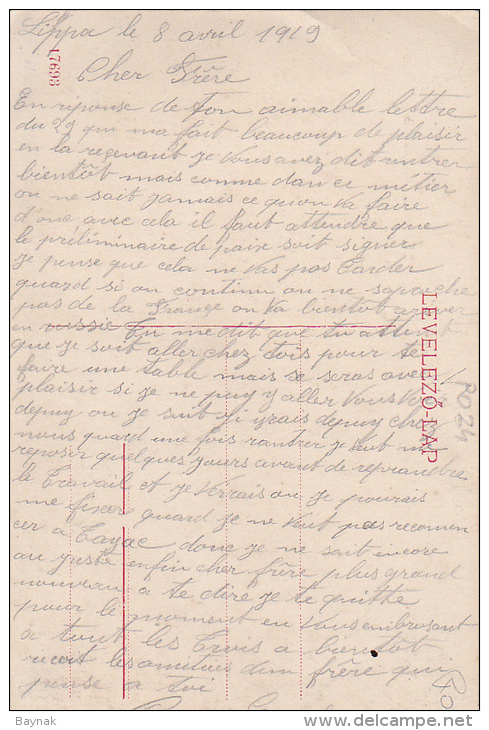 Lippa le 8 avril 1919
17693
Cher Frère
En réponse de ton aimable lettre
du 29 qui ma fait beaucoup de plaisir
en la recevant je vous avez dit rentrer
bientôt mais comme dans ce métier
on ne sait jamais ce quon va faire
d'one avec cela il faut attendre que
le préliminaire de paix soit signer
je pense que cela ne vas pas tarder
quard si on continu on ne saproche
pas de la France on va bientôt arriver
en russie Tu me dit que tu attent
que je soit aller chez tois pour te
faire une table mais se seras avec
plaisir si je ne puy y aller vous
depuy ou je suit j'yrais depuy chez
nous quard une fois rantrer je
reposer quelques jours avant de reprandre
le travail et je verrais ou je pourais
me fixer quard je ne veut pas recomen
cer a Cayac donc je ne sait encore
au juste enfin cher frère plus grand
nouveau a te dire je te quitte
pour le moment en vous embrasant
a tout les trois a bientôt
recoit les amitiés dun frère qui
pense a toi
LEVELEZŐ-LAP
R024
Baynak
delcampe.net